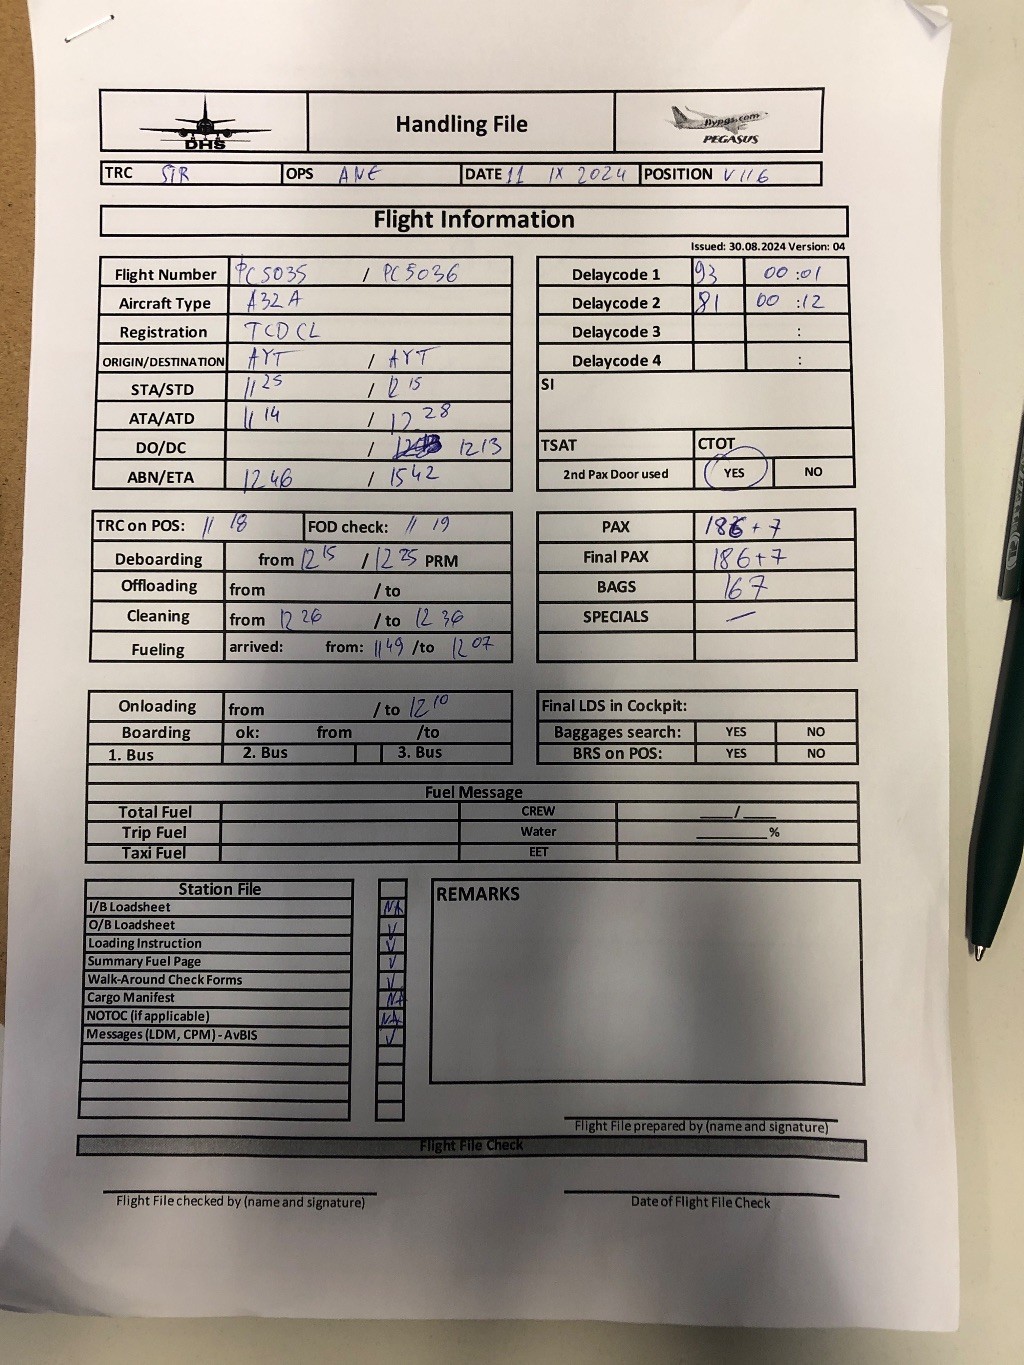 DHS
Handling File
flypgs.com
PEGASUS
TRC STR OPS ANE DATE 11 IX 2024 POSITION V116
Flight Information
Issued: 30.08.2024 Version: 04
Flight Number PC5035 / PC5036
Aircraft Type A32A
Registration TCDCL
ORIGIN/DESTINATION AYT / AYT
STA/STD 11 25 / 12 15
ATA/ATD 11 14 / 12 28
DO/DC / 1213
ABN/ETA 1246 / 1542
Delaycode 1 93 00 :01
Delaycode 2 81 00 :12
Delaycode 3 :
Delaycode 4 :
SI
TSAT CTOT
2nd Pax Door used YES NO
TRC on POS: 11 18 FOD check: 11 19
Deboarding from 12 15 / 12 25 PRM
Offloading from / to
Cleaning from 12 26 / to 12 36
Fueling arrived: from: 11 49 /to 12 07
PAX 186 + 7
Final PAX 186+7
BAGS 167
SPECIALS —
Onloading from / to 12 10
Boarding ok: from /to
1. Bus 2. Bus 3. Bus
Final LDS in Cockpit:
Baggages search: YES NO
BRS on POS: YES NO
Fuel Message
Total Fuel CREW ____/____
Trip Fuel Water ________%
Taxi Fuel EET
Station File
I/B Loadsheet NA
O/B Loadsheet V
Loading Instruction V
Summary Fuel Page V
Walk-Around Check Forms V
Cargo Manifest NA
NOTOC (if applicable) NA
Messages (LDM, CPM) - AvBIS V
REMARKS
Flight File prepared by (name and signature)
Flight File Check
Flight File checked by (name and signature)
Date of Flight File Check